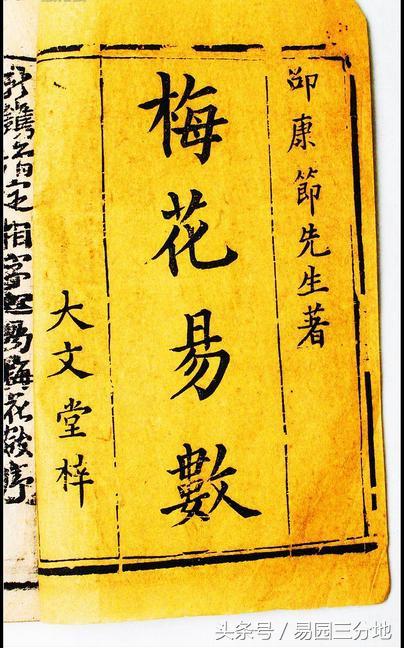 邵康節先生著
梅花易數
大文堂梓
新鐫定相字心易梅花數序
头条号 / 易园三分地